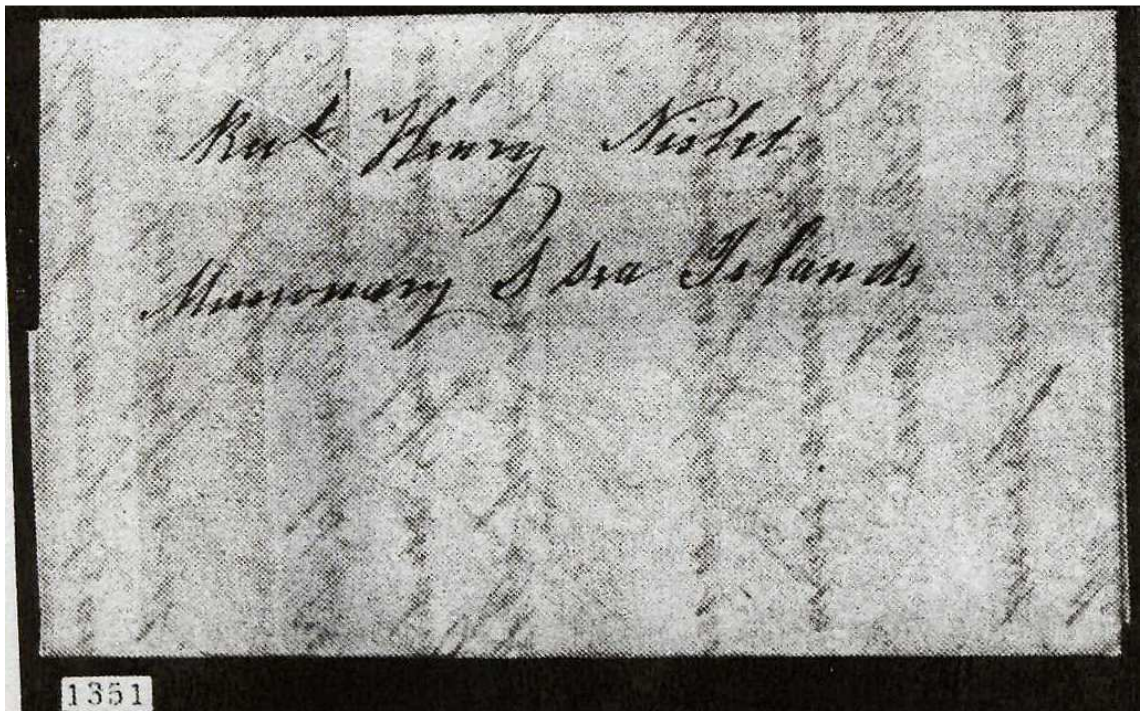 Revd Henry Nisbet
Missionary S Sea Islands
1351